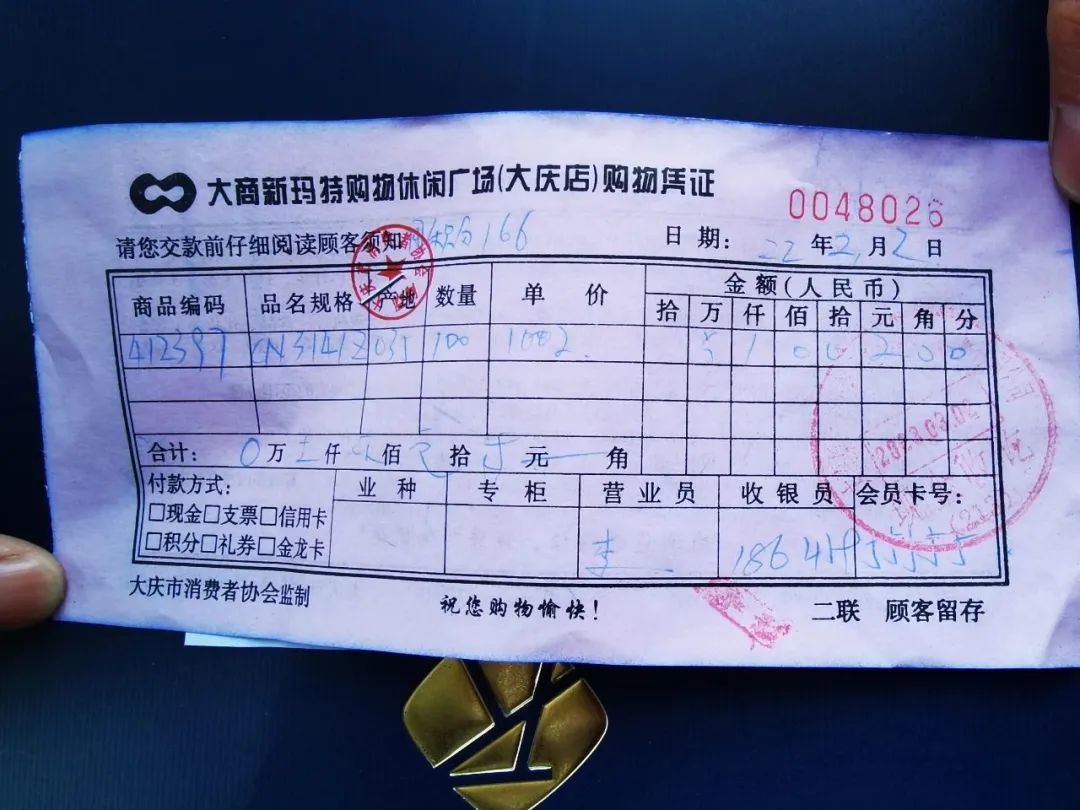 大商新玛特购物休闲广场(大庆店)购物凭证
0048026
请您交款前仔细阅读顾客须知 166 日期: 22年2月2日
商品编码 品名规格 产地 数量 单价 金额(人民币)
拾 万 仟 佰 拾 元 角 分
412397 100 1002 1 0 0 2 0 0
合计: 0万 仟 佰 拾 元 角
付款方式: 业种 专柜 营业员 收银员 会员卡号:
□现金□支票□信用卡
□积分□礼券□金龙卡
李 186
大庆市消费者协会监制 祝您购物愉快! 二联 顾客留存